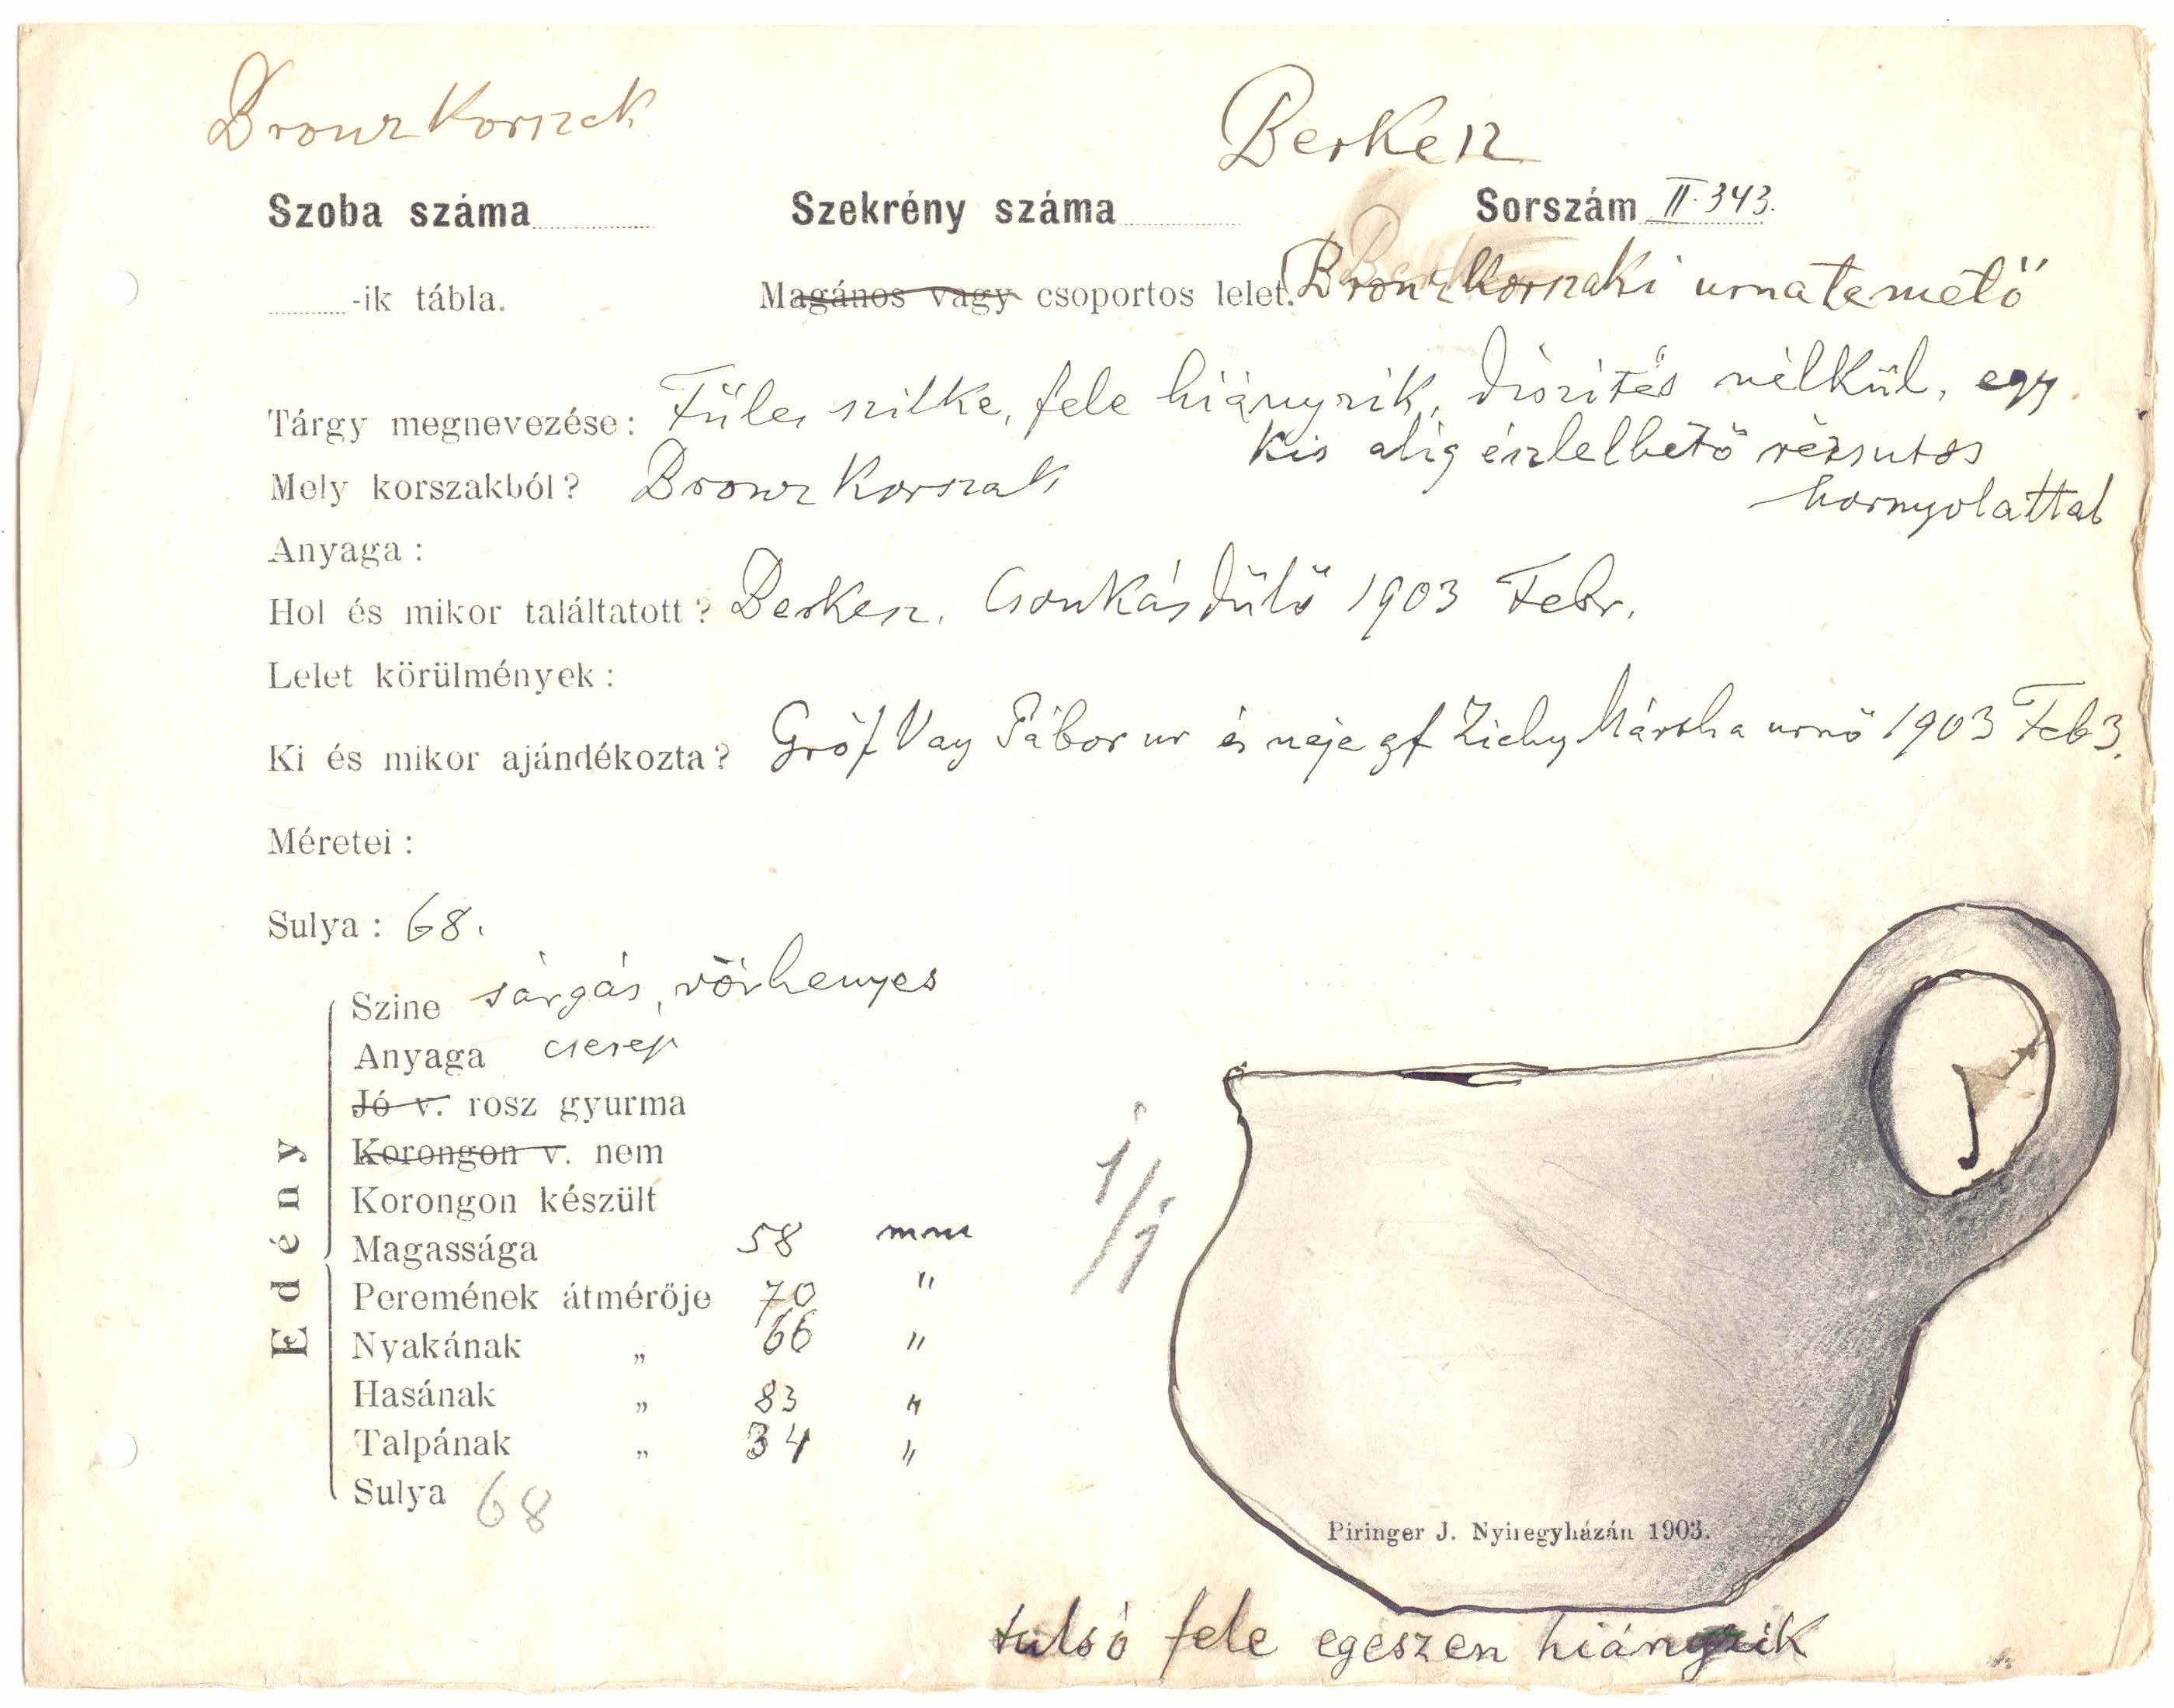 Bronz Korszak
Berkesz
Szoba száma Szekrény száma Sorszám II. 343.
-ik tábla. Magános vagy csoportos lelet. Bronzkorszaki urnatemető
Tárgy megnevezése: Füles szilke, fele hiányzik, díszités nélkül, egy
kis alig észlelhető rézsutos
Mely korszakból? Bronz Korszak
hornyolattal
Anyaga:
Hol és mikor találtatott? Berkesz. Csonkás dűlő 1903 Febr.
Lelet körülmények:
Ki és mikor ajándékozta? Gróf Vay Tábor ur és neje gf Zichy Mártha urnő 1903 Feb 3.
Méretei:
Sulya: 68.
Edény
Szine sárgás, vörhenyes
Anyaga cserép
Jó v. rosz gyurma
Korongon v. nem
Korongon készült
Magassága 58 mm
Peremének átmérője 70 "
Nyakának „ 66 "
Hasának „ 83 "
Talpának „ 34 "
Sulya 68
1/1
Piringer J. Nyiregyházán 1903.
tulsó fele egeszen hiányzik